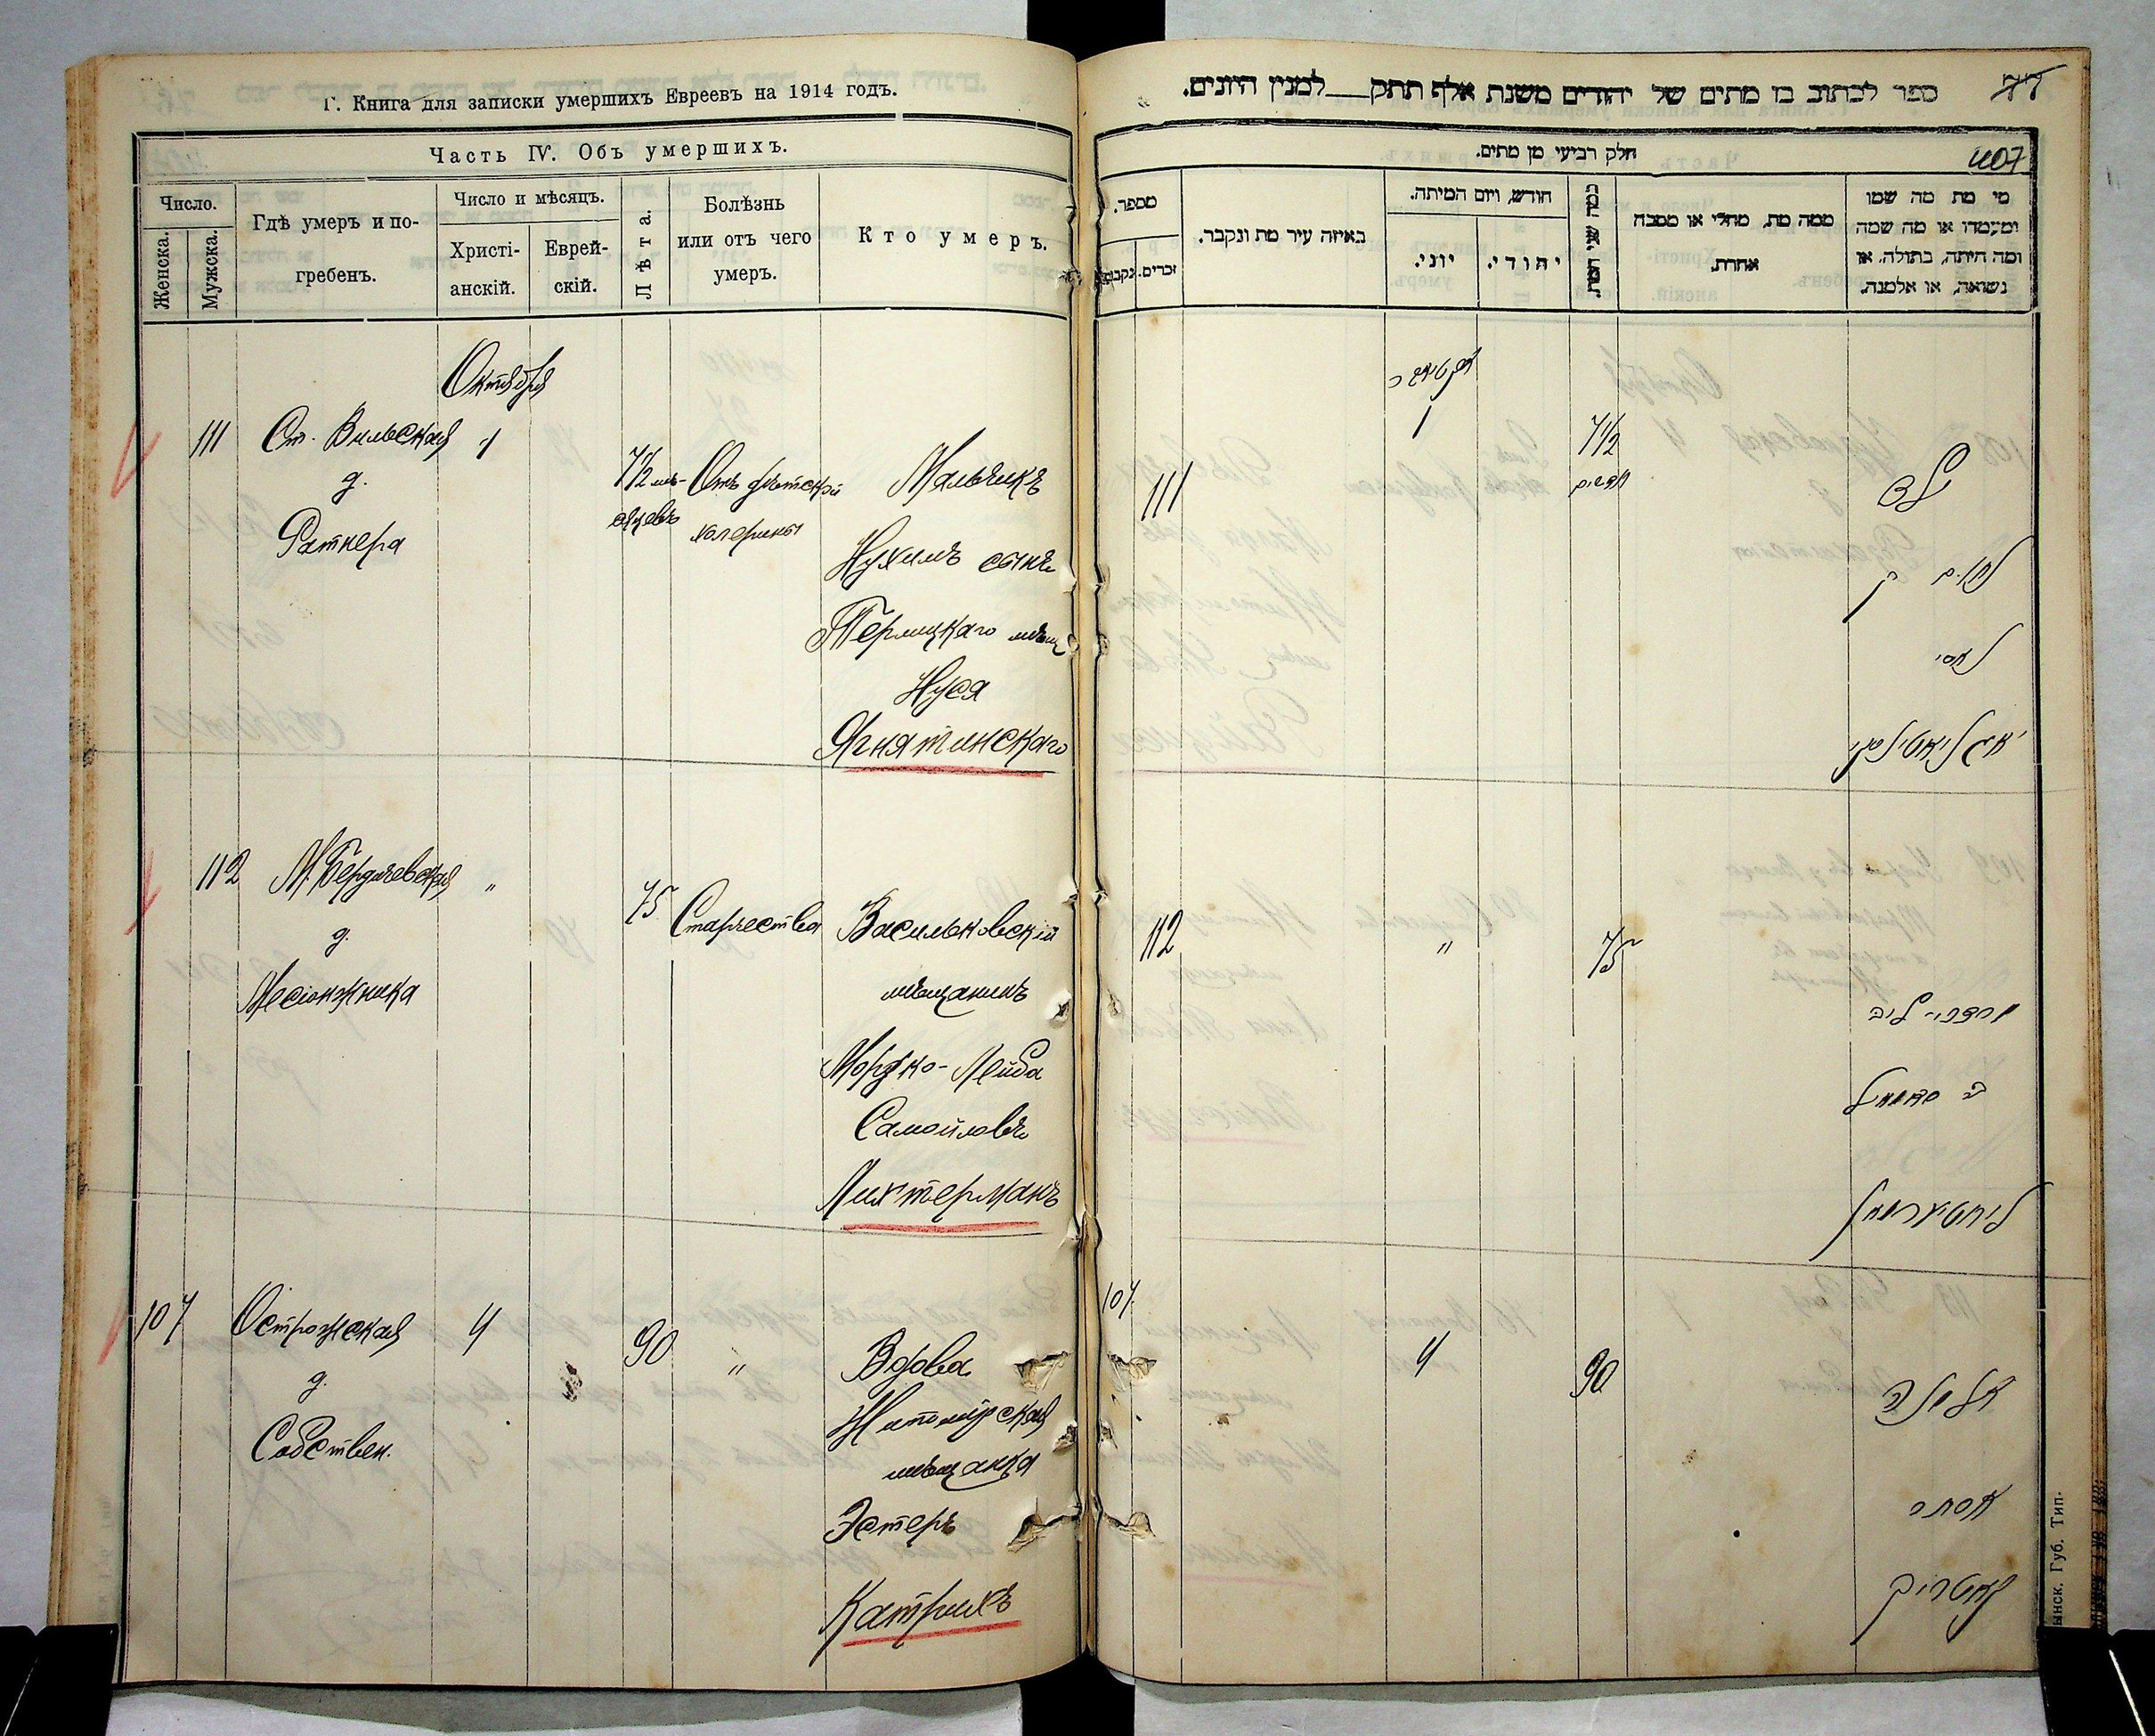 Г. Книга для записки умершихъ Евреевъ на 1914 годъ.
Часть IV. Объ умершихъ.
Число.
Женска.
Мужска.
Гдѣ умеръ и по-
гребенъ.
Число и мѣсяцъ.
Христі-
анскій.
Еврей-
скій.
Лѣта.
Болѣзнь
или отъ чего
умеръ.
Кто умеръ.
Октября
111 Ст. Вильская 1
д.
Ратнера
7½ мѣ-
сяцевъ
Отъ дѣтской
холерины
Мальчикъ
Нухимъ сынъ
мѣщ
Нуся
Ягнятинскаго
112 М. Бердичевская "
д.
75 Старчества
Васильковскій
мѣщанинъ
Мордко-Лейба
Самойловъ
Лихтерманъ
107 Острожская 4
д.
Собствен.
90 "
Вдова
Житомірская
мѣщанка
Эстеръ
Катрихъ
ספר לכתוב בו מתים של יהודים משנת אלף תתק __ למנין היונים.
77
407
חלק רביעי מן מתים.
מספר.
זכרים.
נקבות.
באיזה עיר מת ונקבר.
חודש, ויום המיתה.
יוני.
יהודי.
כמה שני המת.
ממה מת, מחלי או מסבה
אחרת.
מי מת מה שמו
ומעמדו או מה שמה
ומה היתה, בתולה, או
נשואה, או אלמנה.
אקטיאבר
1
111
7½
חדשים
ילד
נחום בן
נוסי
יאגניאטינסקי
112
"
75
מרדכי ליב
ב סאמויל
ליכטערמאן
107
4
90
אלמנה
אסתר
קאטריך
ынск. Губ. Тип-